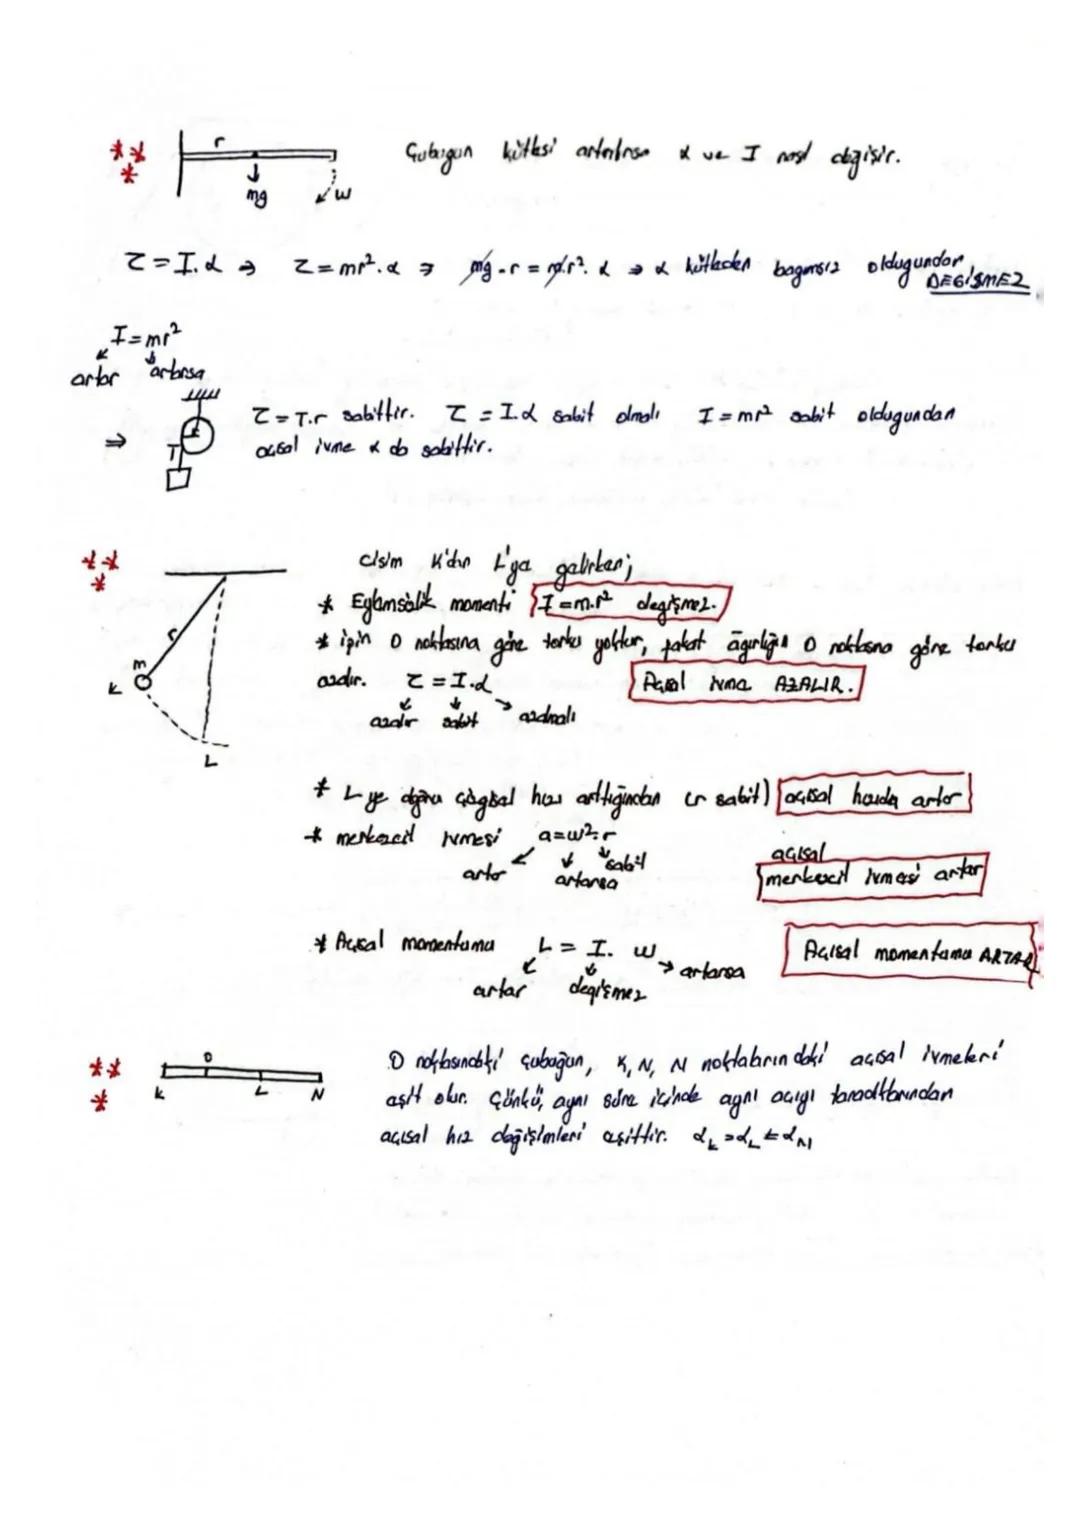 r
Çubugun kütlesi artarlırsa α ve I nasıl değişir.
mg
w
τ = I.α → τ = mr².α ⇒ mg.r = mr².α → α kütleden bagımsız oldugundan DEĞİŞMEZ
I = mr²
artar artarsa
⇒ T
τ = T.r sabittir. τ = I.α sabit olmalı I = mr² sabit oldugundan
açısal ivme α da sabittir.
cisim K'dan L'ya gelirken;
* Eylemsizlik momenti I = m.r² değişmez.
* ipin O noktasına göre torku yoktur, fakat ağırlığın O noktasına göre torku
azalır. τ = I.α Açısal ivme AZALIR.
azalır sabit azalmalı
r
m
K
L
* L ye doğru çizgisel hızı arttığından (r sabit) açısal hızıda artar
* merkezcil ivmesi a = w².r
artar artarsa sabit
açısal
merkezcil ivmesi artar
* Açısal momentumu L = I. w Açısal momentumu ARTAR
artar değişmez artarsa
O
K L N
O noktasındaki çubuğun, K, N, N noktalarındaki açısal ivmeleri
eşit olur. Çünkü, aynı süre içinde aynı açıyı taradıklarından
açısal hız değişimleri eşittir. α_K = α_L = α_N